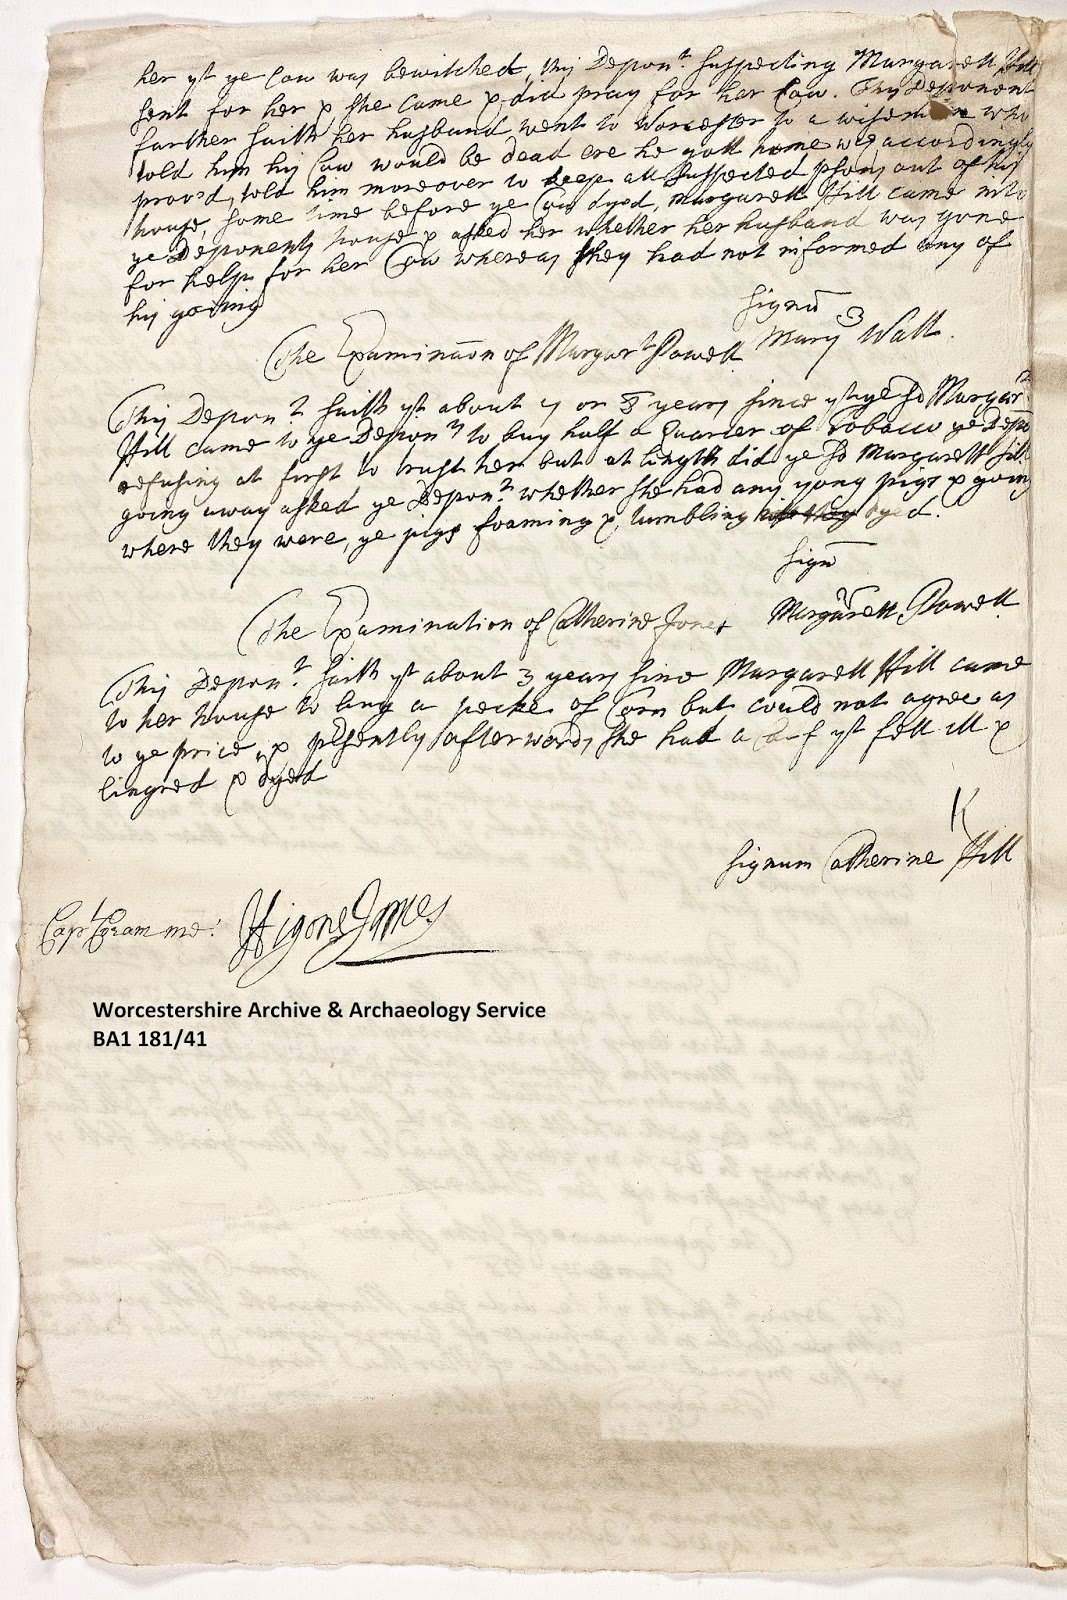 her yt ye Cow was bewitched, this Depont suspecting Margarett Hill
sent for her & she came & did pray for her Cow. This Deponent
further saith her husband went to Worcester to a wiseman who
told him his Cow would be dead ere he gott home wch accordingly
proved, told him moreover to keep all suspected psons out of his
house, some time before ye Cow dyed, Margarett Hill came into
ye Deponents house & asked her whether her husband was gone
for help for her Cow whereas they had not informed any of
his going
Signū
Mary 3 Watt.
The Examinācon of Margart Powell
This Depont saith yt about 7 or 8 years since yt ye sd Margart
Hill came to ye Depont to buy half a Quarter of Tobacco ye Depont
refusing at first to trust her but at length did ye sd Margarett Hill
going away asked ye Depont whether she had any yong pigs & going
where they were, ye pigs foaming & tumbling dyed.
Sign
Margarett Powell
The Examination of Catherine Jones
This Depont saith yt about 3 years since Margarett Hill came
to her house to buy a pecke of Corn but could not agree as
to ye price, & psently afterwards she had a Calf yt fell ill &
lingred & dyed
K
Signum Catherine Hill
Capt Coram me:
Worcestershire Archive & Archaeology Service
BA1 181/41